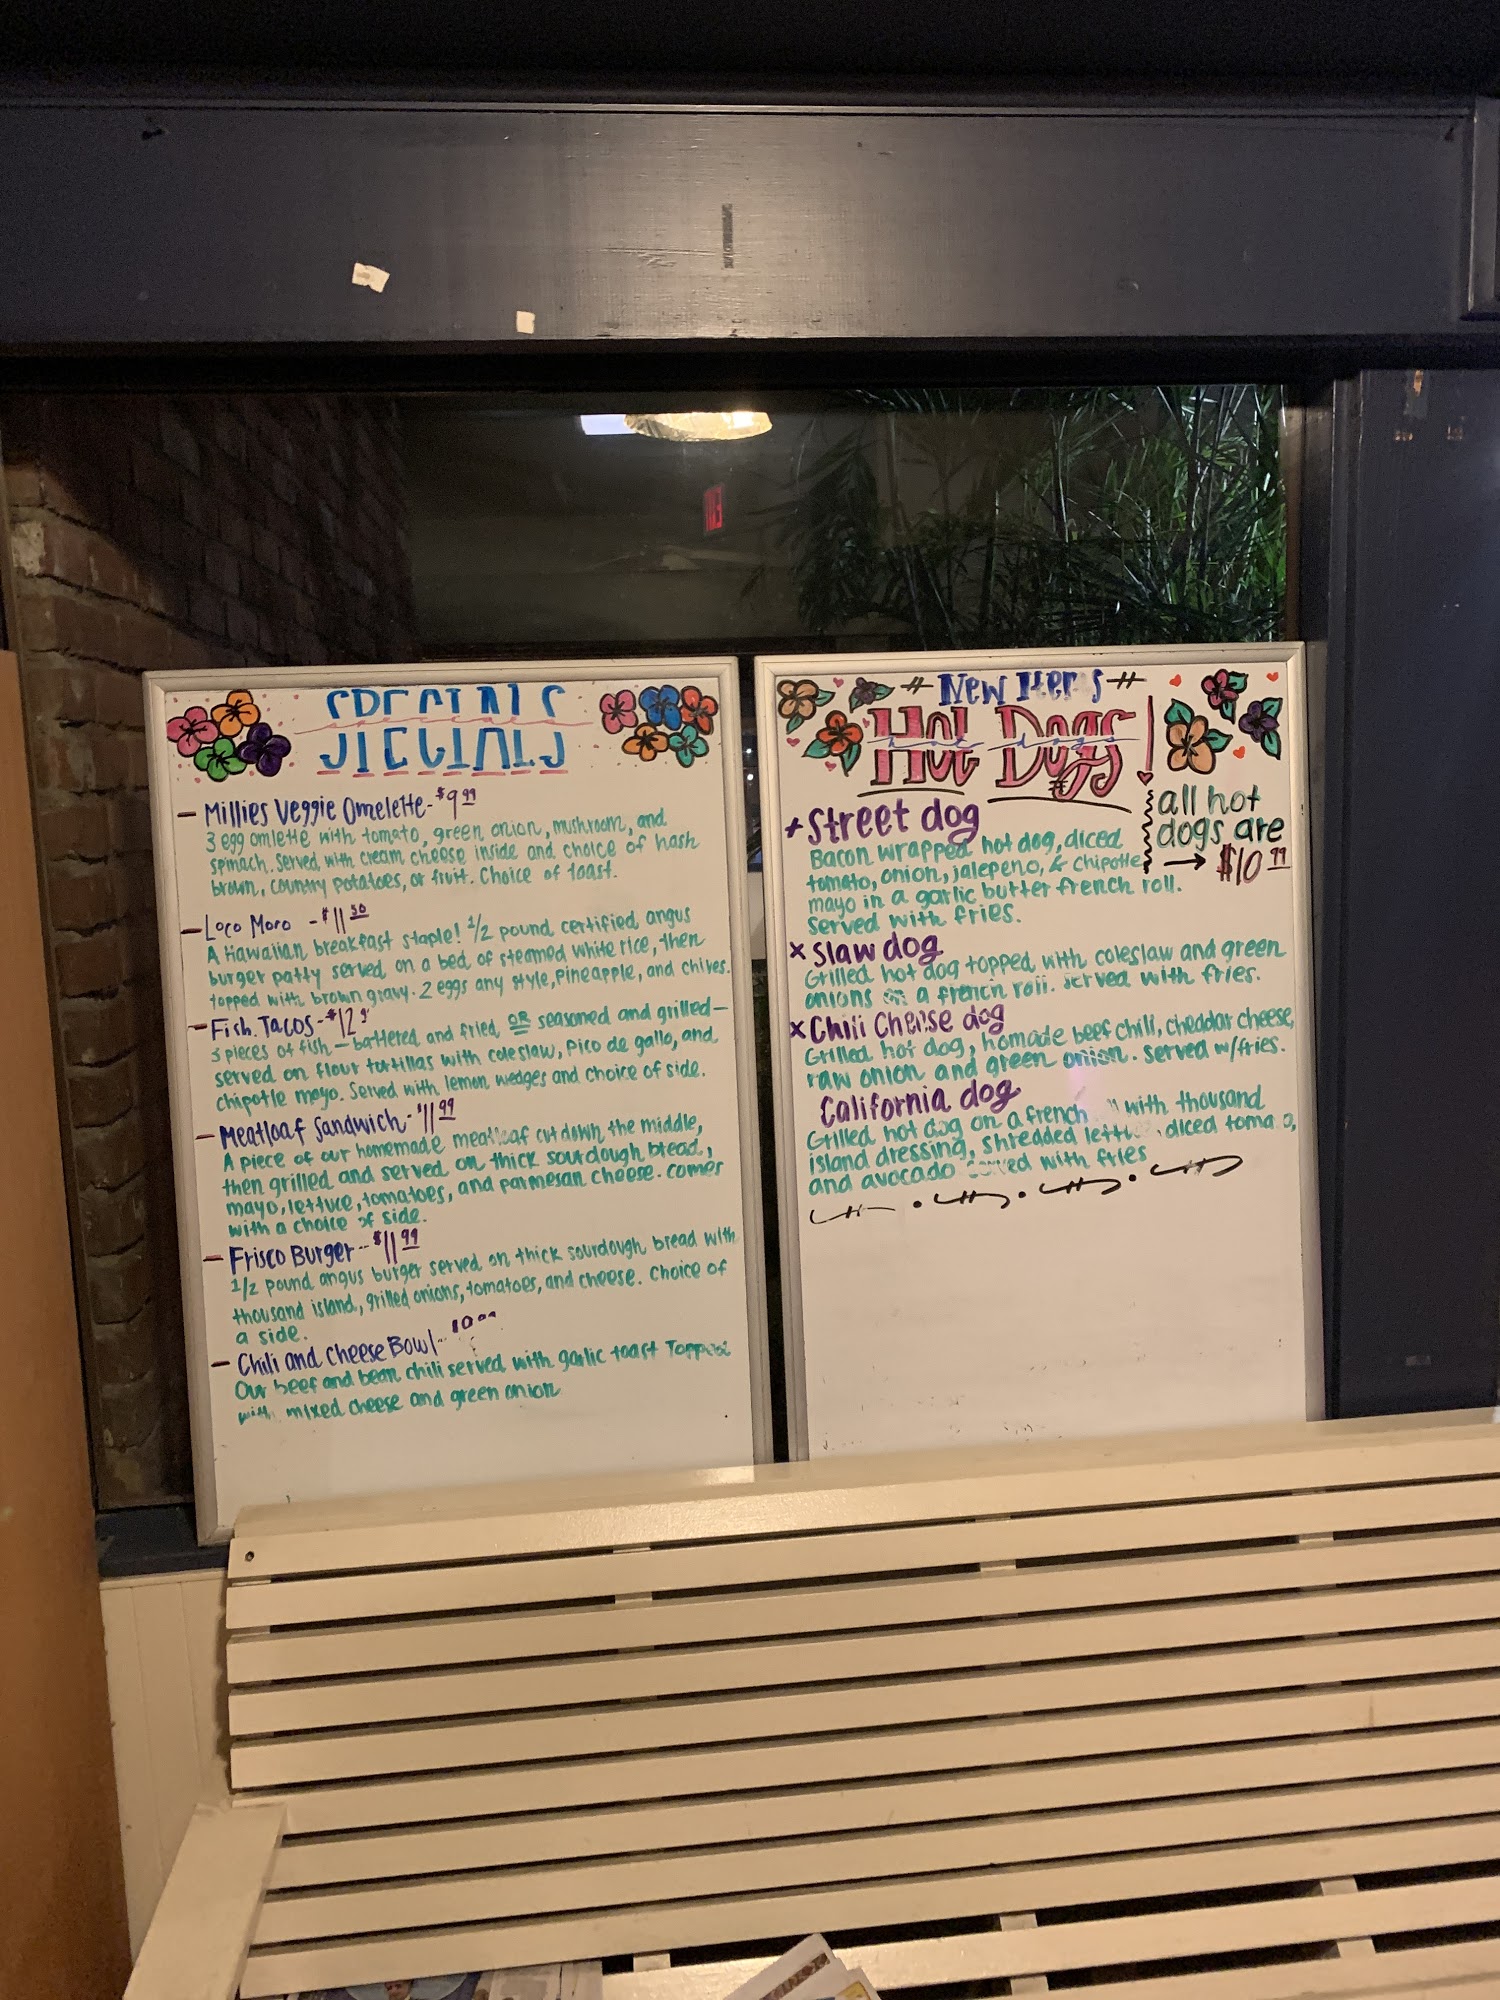 SPECIALS
specials
- Millies Veggie Omelette - $9.99
3 egg omlette with tomato, green onion, mushroom, and
spinach. Served with cream cheese inside and choice of hash
brown, country potatoes, or fruit. Choice of toast.
- Loco Moco - $11.50
A Hawaiian breakfast staple! 1/2 pound certified angus
burger patty served on a bed of steamed white rice, then
topped with brown gravy. 2 eggs any style, pineapple, and chives.
- Fish Tacos - $12
3 pieces of fish - battered and fried, OR seasoned and grilled -
served on flour tortillas with coleslaw, pico de gallo, and
chipotle mayo. Served with lemon wedges and choice of side.
- Meatloaf Sandwich - $11.99
A piece of our homemade meatloaf cut down the middle,
then grilled and served on thick sourdough bread,
mayo, lettuce, tomatoes, and parmesan cheese. comes
with a choice of side.
- Frisco Burger - $11.99
1/2 pound angus burger served on thick sourdough bread with
thousand island, grilled onions, tomatoes, and cheese. Choice of
a side.
- Chili and Cheese Bowl -
Our beef and bean chili served with garlic toast Topped
with mixed cheese and green onion
New Items
Hot Dogs
hot dogs
all hot
dogs are
→ $10.99
x Street dog
Bacon wrapped hot dog, diced
tomato, onion, jalepeno, & Chipotle
mayo in a garlic butter french roll.
served with fries.
x Slaw dog
Grilled hot dog topped with coleslaw and green
onions on a french roll. served with fries.
x Chili Cheese dog
Grilled hot dog, homade beef chili, cheddar cheese,
raw onion and green onion. served w/fries.
California dog
Grilled hot dog on a french with thousand
island dressing, shredded lettuce, diced
and avocado served with fries